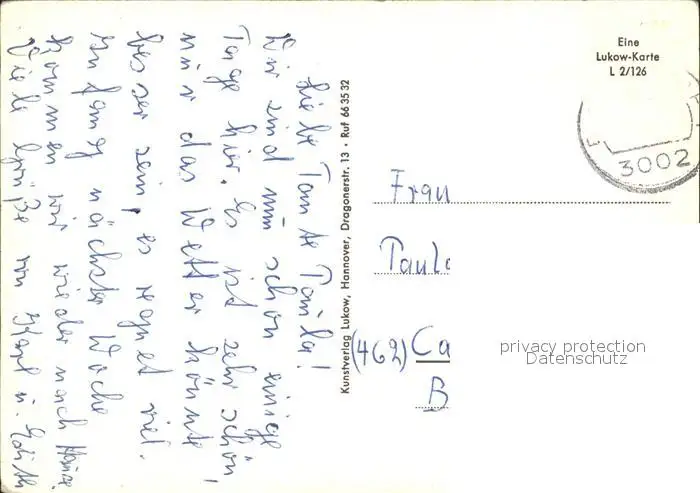 Liebe Tante Paula!
Wir sind nun schon einige
Tage hier. Es ist sehr schön,
nur das Wetter könnte
besser sein, es regnet viel.
Anfang nächster Woche
kommen wir wieder nach Hause.
Viele Grüße von Karl u. Edith
Kunstverlag Lukow, Hannover, Dragonerstr. 13 • Ruf 66 35 32
Eine
Lukow-Karte
L 2/126
3002
Frau
Paul
(462) Ca
B
privacy protection
Datenschutz